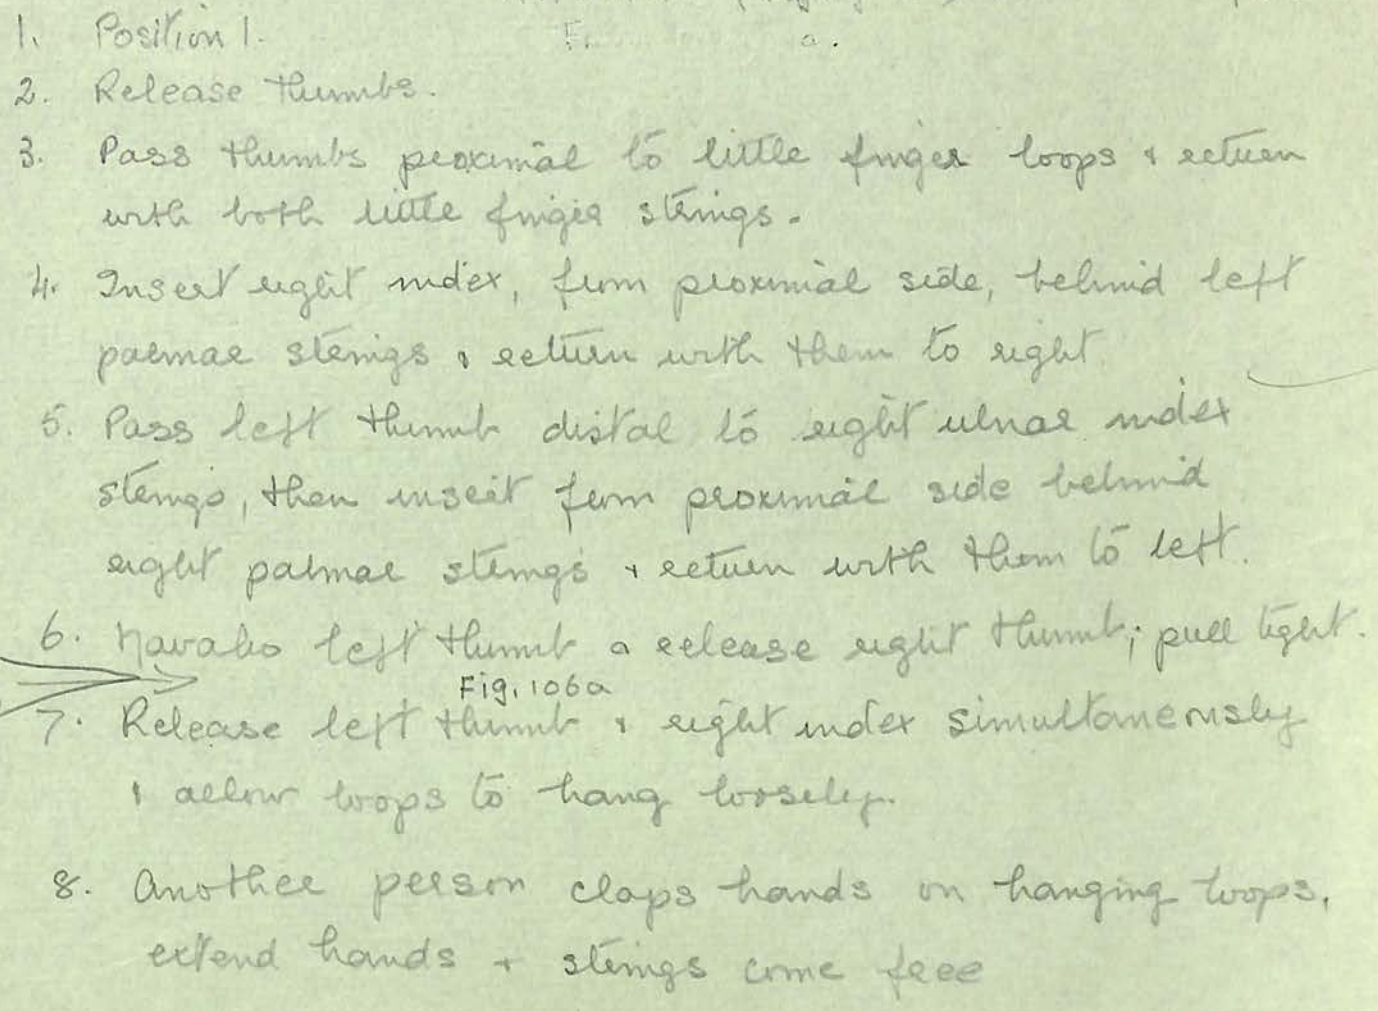 1. Position 1.
2. Release thumbs.
3. Pass thumbs proximal to little finger loops & return
with both little finger strings.
4. Insert right index, from proximal side, behind left
palmar strings & return with them to right
5. Pass left thumb distal to right ulnar index
strings, then insert from proximal side behind
right palmar strings & return with them to left.
6. Navaho left thumb & release right thumb; pull tight.
Fig. 106a
7. Release left thumb & right index simultaneously
& allow loops to hang loosely.
8. Another person claps hands on hanging loops,
extend hands + strings come free